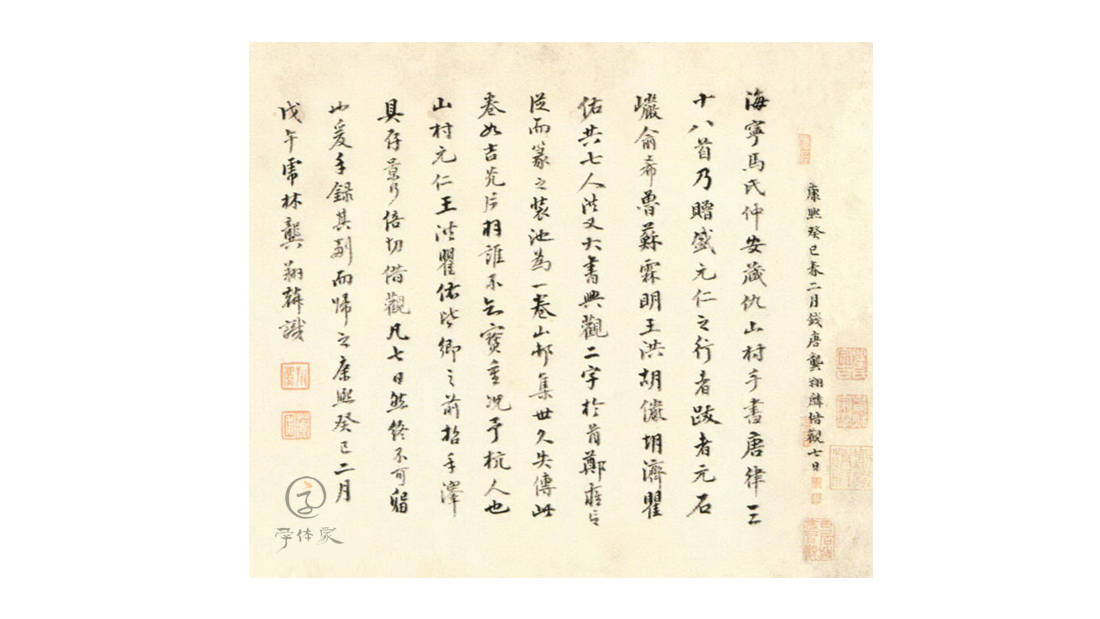 康熙癸巳春二月錢唐龔翔麟借觀七日
海寧馬氏仲安藏仇山村手書唐律三
十八首乃贈盛元仁之行者跋者元石
巖俞希魯蘇霖明王洪胡儼胡濟瞿
佑共七人洪又大書典觀二字於首鄭
從而篆之裝池為一卷山邨集世久失傳此
卷如吉光片羽誰不知寶重況予杭人也
山村元仁王洪瞿佑皆鄉之前招手澤
具存景仰倍切借觀凡七日然終不可留
也爰手錄其副而歸之康熙癸巳二月
戊午霍林龔翔麟識
字体家